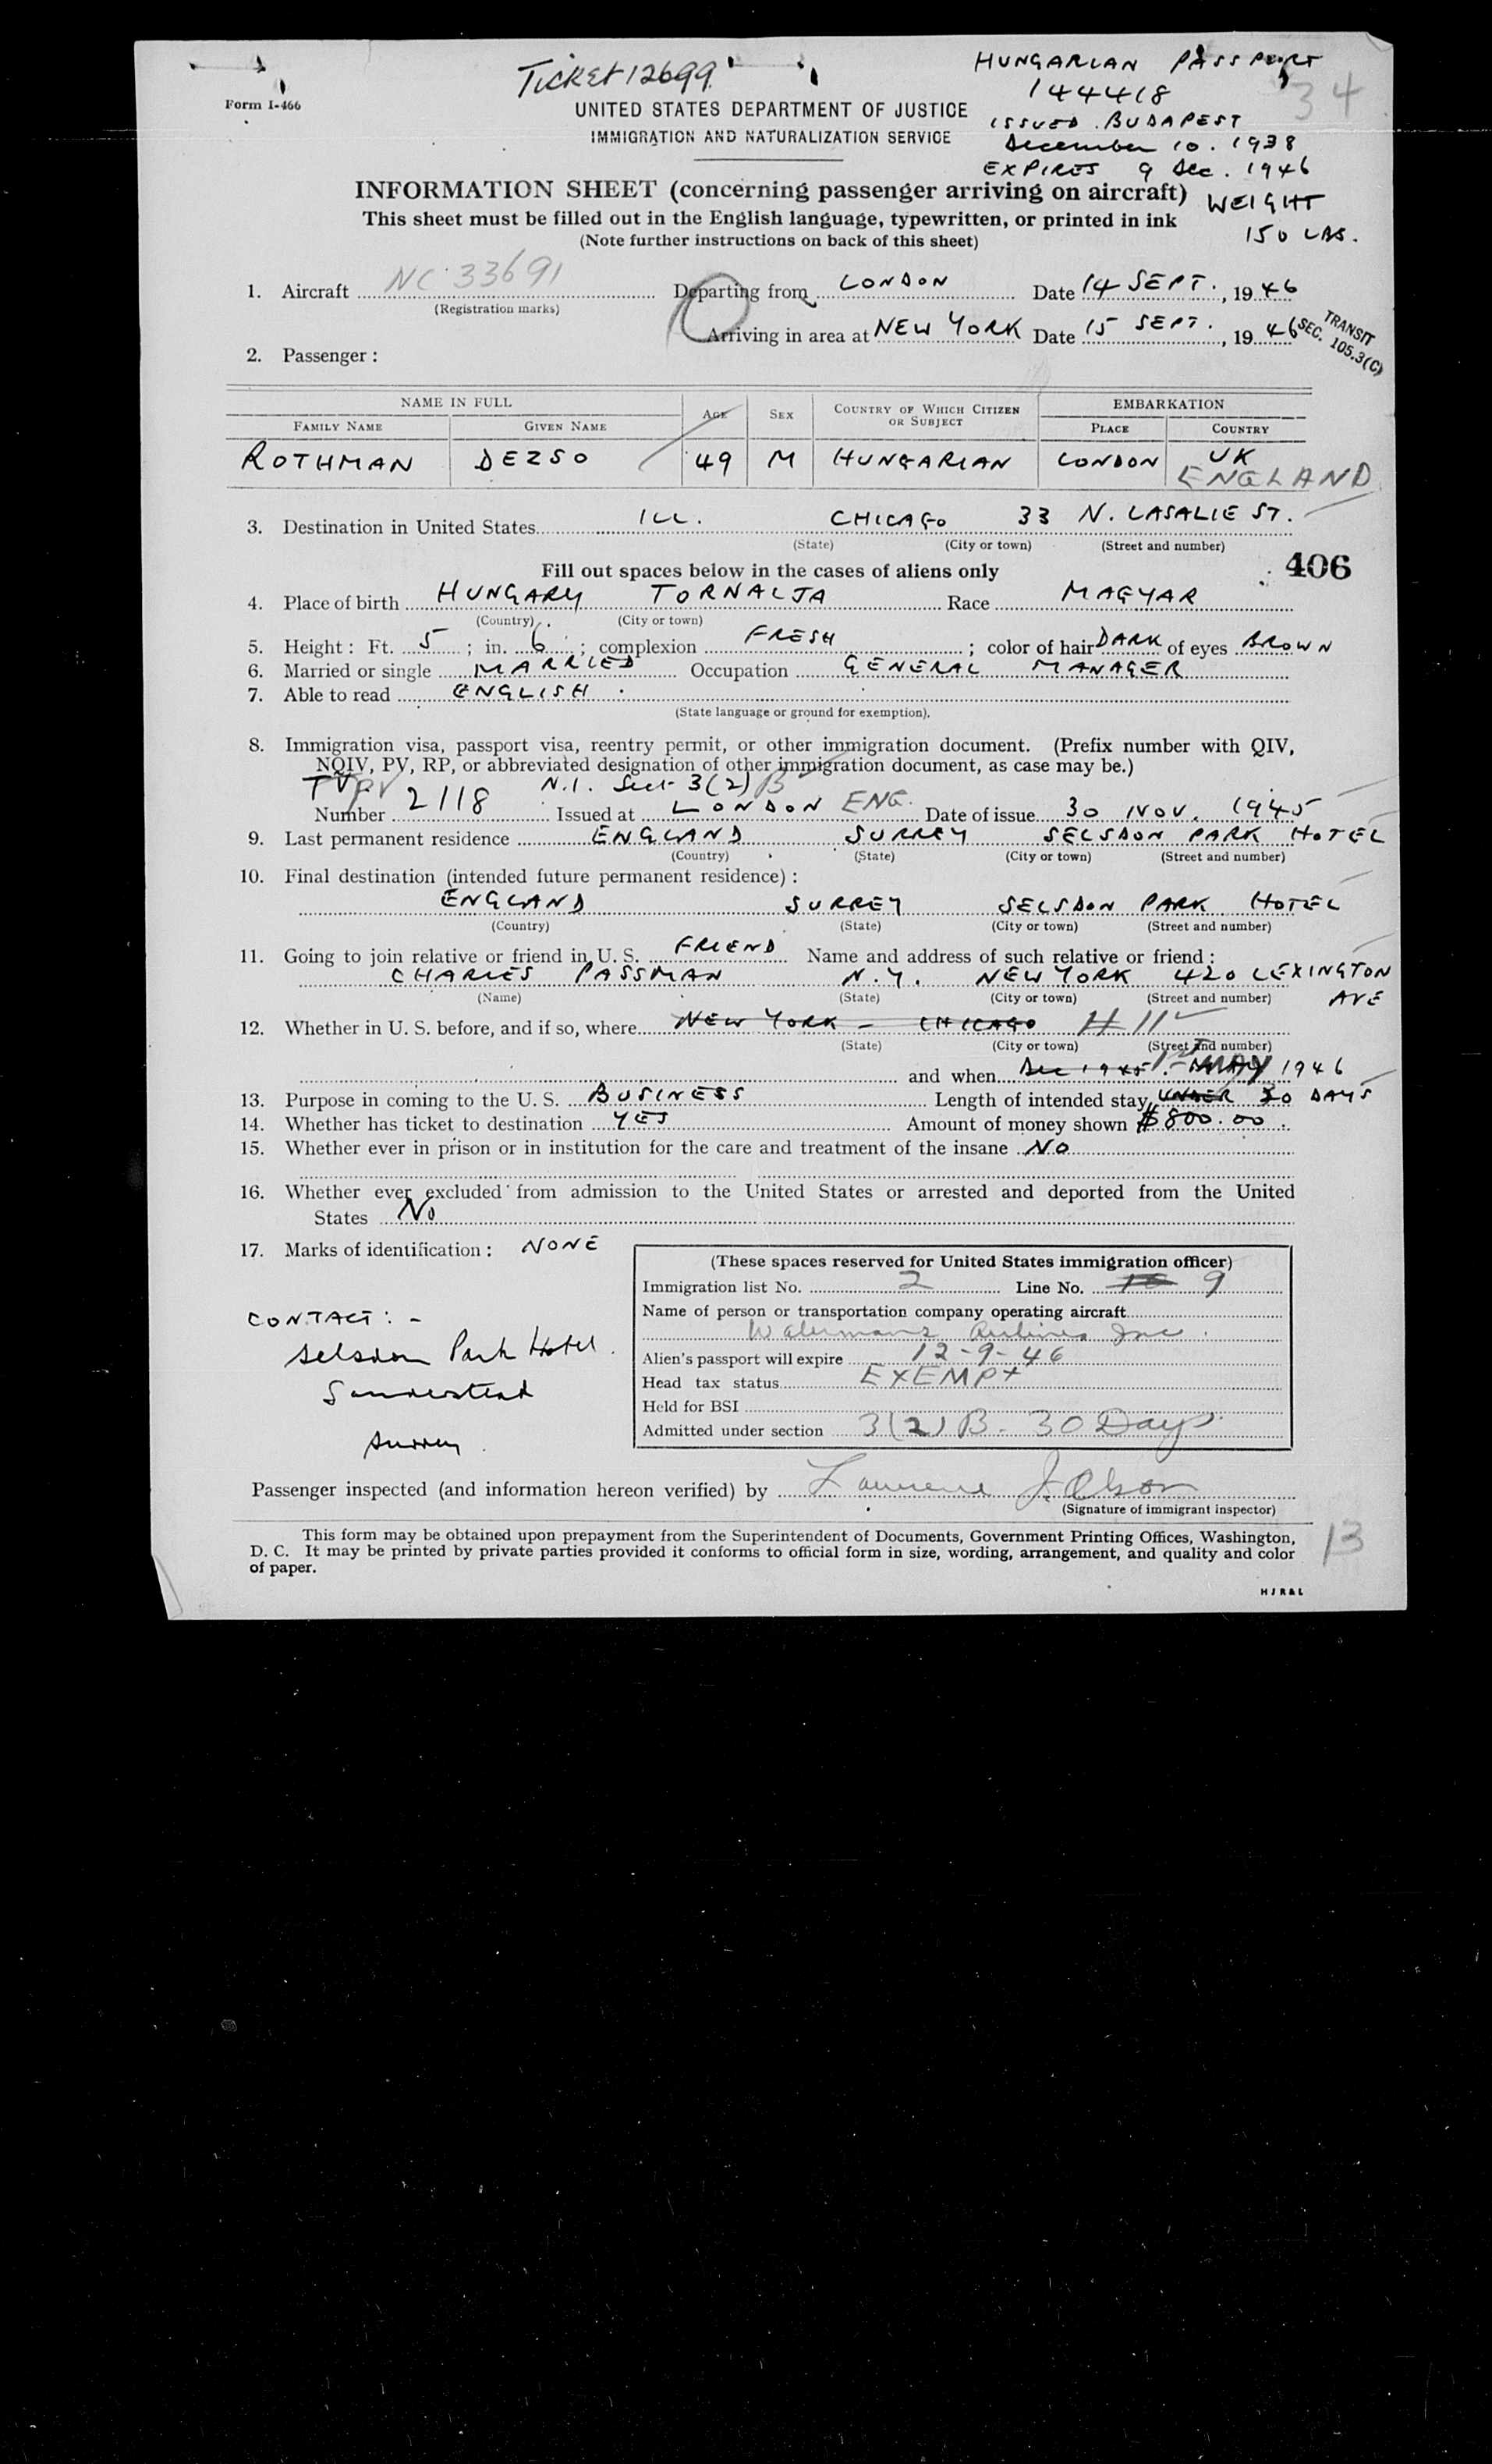 Ticket 12699
HUNGARIAN PASSPORT
34
144418
Form I-466
UNITED STATES DEPARTMENT OF JUSTICE
ISSUED BUDAPEST
IMMIGRATION AND NATURALIZATION SERVICE
December 10. 1938
EXPIRES 9 Dec. 1946
INFORMATION SHEET (concerning passenger arriving on aircraft)
WEIGHT
150 LBS.
This sheet must be filled out in the English language, typewritten, or printed in ink
(Note further instructions on back of this sheet)
1. Aircraft NC 33691 Departing from LONDON Date 14 SEPT. , 1946
(Registration marks)
Arriving in area at NEW YORK Date 15 SEPT. , 1946
TRANSIT
SEC. 105.3(C)
2. Passenger :
NAME IN FULL AGE SEX COUNTRY OF WHICH CITIZEN OR SUBJECT EMBARKATION
FAMILY NAME GIVEN NAME PLACE COUNTRY
ROTHMAN DEZSO 49 M HUNGARIAN LONDON UK
ENGLAND
3. Destination in United States ILL. CHICAGO 33 N. LASALIE ST.
(State) (City or town) (Street and number)
406
Fill out spaces below in the cases of aliens only
4. Place of birth HUNGARY TORNALJA Race MAGYAR
(Country) (City or town)
5. Height : Ft. 5 ; in. 6 ; complexion FRESH ; color of hair DARK of eyes BROWN
6. Married or single MARRIED Occupation GENERAL MANAGER
7. Able to read ENGLISH .
(State language or ground for exemption).
8. Immigration visa, passport visa, reentry permit, or other immigration document. (Prefix number with QIV,
NQIV, PV, RP, or abbreviated designation of other immigration document, as case may be.)
TV PV N.I. Sect 3(2) B
Number 2118 Issued at LONDON ENG. Date of issue 30 NOV. 1945
9. Last permanent residence ENGLAND SURREY SELSDON PARK HOTEL
(Country) (State) (City or town) (Street and number)
10. Final destination (intended future permanent residence) :
ENGLAND SURREY SELSDON PARK HOTEL
(Country) (State) (City or town) (Street and number)
11. Going to join relative or friend in U. S. FRIEND Name and address of such relative or friend :
CHARLES PASSMAN N.Y. NEW YORK 420 LEXINGTON AVE
(Name) (State) (City or town) (Street and number)
12. Whether in U. S. before, and if so, where NEW YORK - CHICAGO # 11
(State) (City or town) (Street and number)
and when Dec 1945 - MAY 1946
13. Purpose in coming to the U. S. BUSINESS Length of intended stay UNDER 30 DAYS
14. Whether has ticket to destination YES Amount of money shown $800.00
15. Whether ever in prison or in institution for the care and treatment of the insane NO
16. Whether ever excluded from admission to the United States or arrested and deported from the United
States No
17. Marks of identification : NONE
(These spaces reserved for United States immigration officer)
Immigration list No. 2 Line No. 9
Name of person or transportation company operating aircraft
Watermans Airlines Inc.
Alien's passport will expire 12-9-46
Head tax status EXEMPT
Held for BSI
Admitted under section 3(2) B - 30 Days
CONTACT : -
Selsdon Park Hotel.
Sanderstead
Surrey.
Passenger inspected (and information hereon verified) by Laurence J. Olson
(Signature of immigrant inspector)
This form may be obtained upon prepayment from the Superintendent of Documents, Government Printing Offices, Washington,
D. C. It may be printed by private parties provided it conforms to official form in size, wording, arrangement, and quality and color
of paper.
13
HJR&L